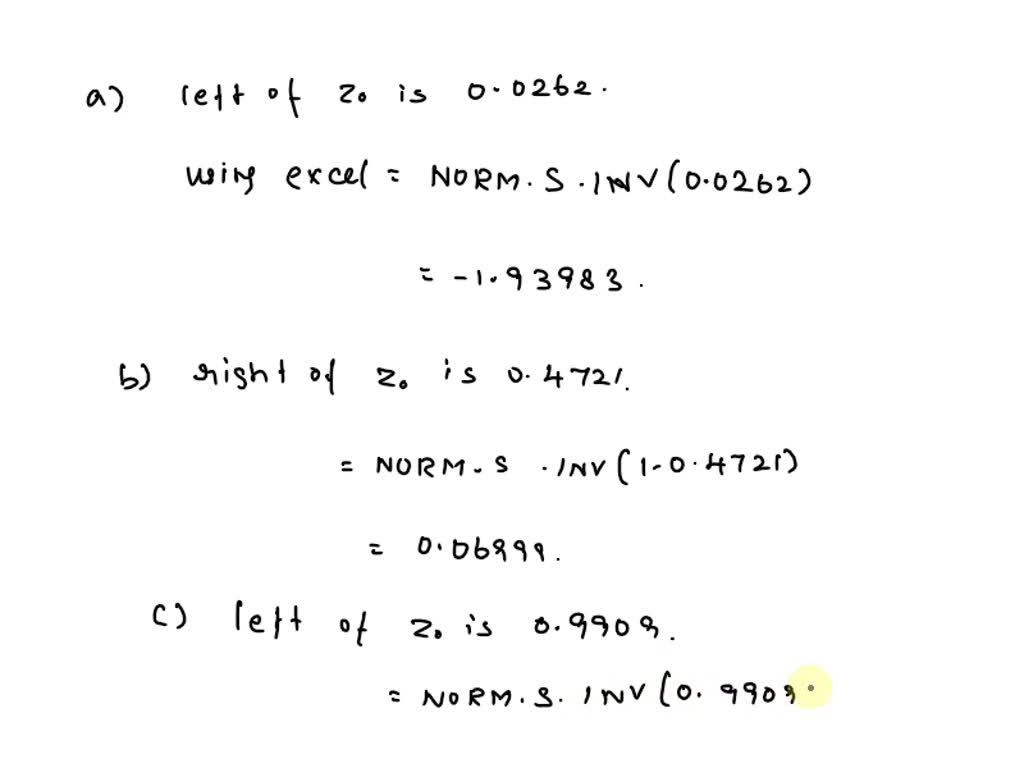 a) left of z₀ is 0.0262.
using excel = NORM.S.INV(0.0262)
= -1.93983.
b) right of z₀ is 0.4721.
= NORM.S.INV(1-0.4721)
= 0.06999.
c) left of z₀ is 0.9909.
= NORM.S.INV(0.9909